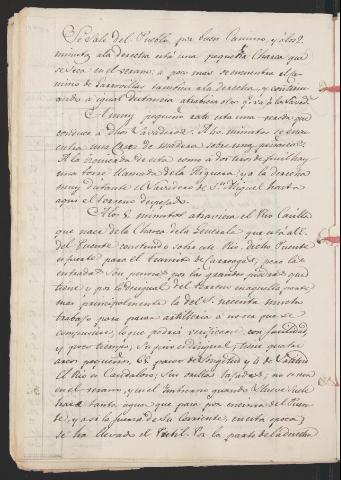 Se Sale del Pueblo por buen Camino, y a los 2
minutos a la derecha está una pequeña Charca que
se seca en el verano: a por mas se encuentra el Ca-
mino de Garrovillas tambien a la derecha, y continu-
ando a igual distancia atraviesa
El muy pequeño este una vereda que
conduce a dhos Lavaderos. A los minutos se encu-
entra una Cruz de madera sobre una
A la izquierda de esta como a dos tiros de fusil hay
una torre llamada de la Higuera, y a la derecha
muy distante el Lavadero de Sn. Miguel hasta
aqui el terreno despejado.
A los 8 minutos atraviesa el Rio Casillas
que nace de la Charca de la Generala que está
del Puente construido sobre este Rio, dicho Puente
es fuerte para el transito de carruages, pero la
entrada son penosas por las grandes piedras que
tiene y por lo desigual del terreno en aquella parte
mas principalmente la del S. necesita mucho
trabajo para pasar artilleria a no ser que se
compusiese, lo que podria verificarse con facilidad
y poco tiempo. Su piso es desigual; tiene cuatro
arcos pequeños, 67 pasos de longitud y 4 de Latitud
El Rio es Caudaloso, Sus orillas bajas, no se seca
en el verano, y en el Imbierno quando llueve suele
traer tanta agua que pasa por encima del Puen-
te, y a si la fuerza de su Corriente, en esta epoca
se ha llevado el Pretil. Por la parte de la derecha